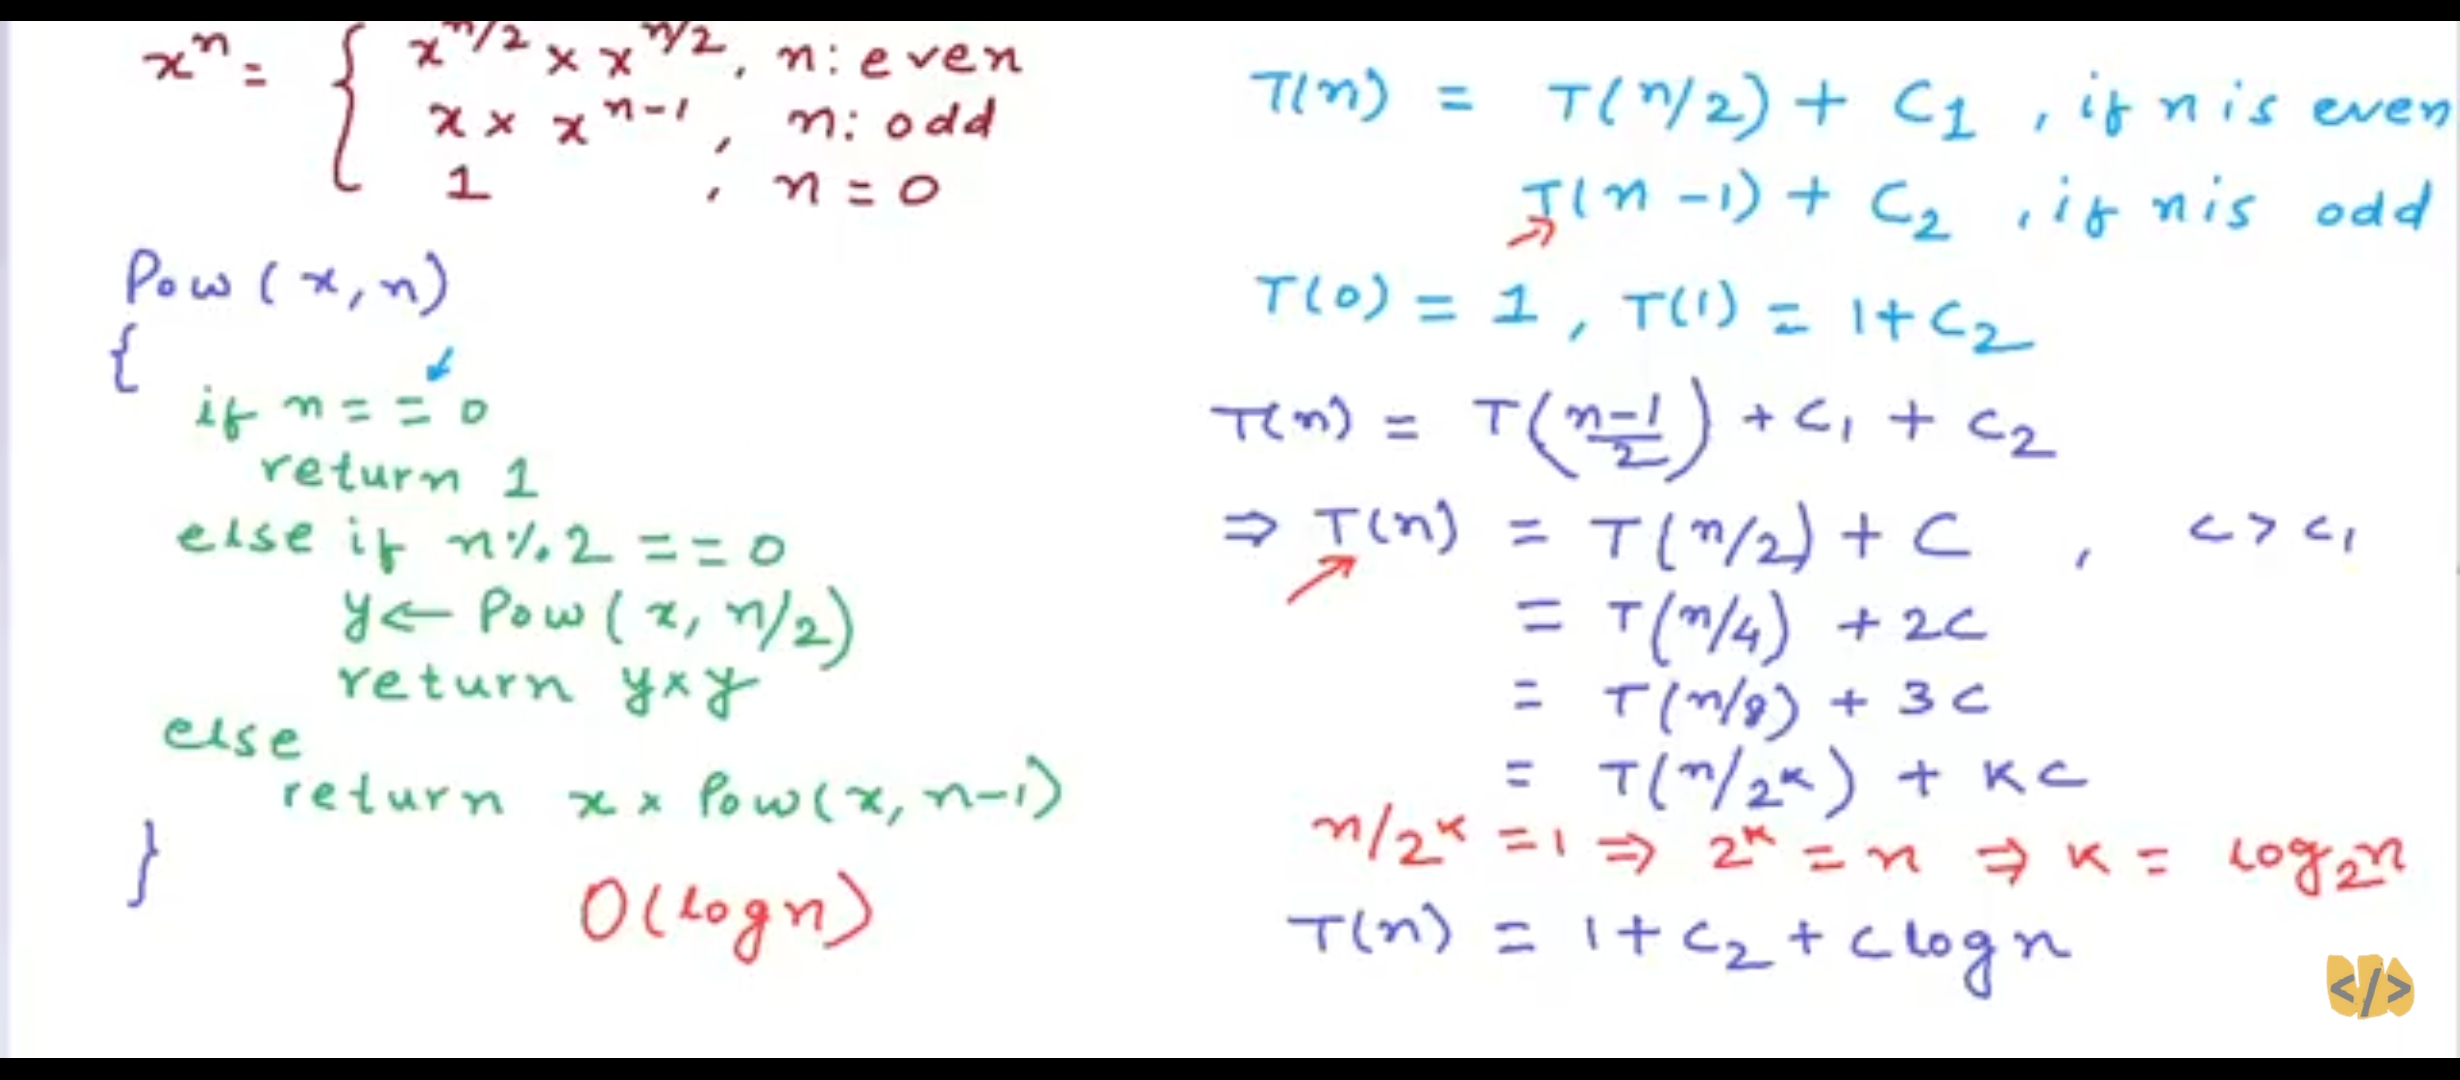 xⁿ = { x^n/2 × x^n/2, n: even
x × x^n-1, n: odd
1, n = 0
Pow(x,n)
{
if n == 0
return 1
else if n%2 == 0
y ← Pow(x, n/2)
return y×y
else
return x × Pow(x, n-1)
}
O(log n)
T(n) = T(n/2) + C1, if n is even
T(n-1) + C2, if n is odd
T(0) = 1, T(1) = 1+C2
T(n) = T((n-1)/2) + C1 + C2
⇒ T(n) = T(n/2) + C, C > C1
= T(n/4) + 2C
= T(n/8) + 3C
= T(n/2^K) + KC
n/2^K = 1 ⇒ 2^K = n ⇒ K = log₂n
T(n) = 1 + C2 + C log n
</>